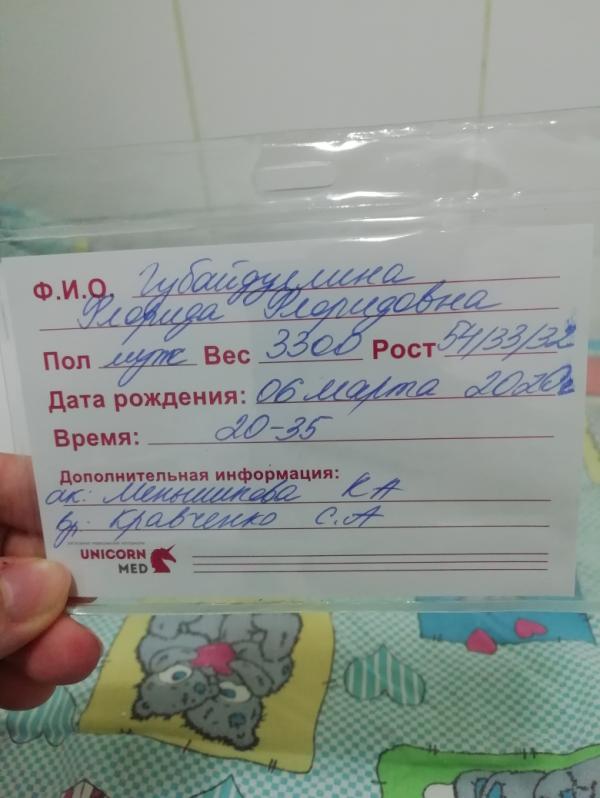 Ф.И.О. Губайдуллина
Флорида Флоридовна
Пол муж Вес 3300 Рост 54/33/32
Дата рождения: 06 марта 2020г
Время: 20-35
Дополнительная информация:
ак: Меньшикова К А
вр. Кравченко С.А
UNICORN
MED